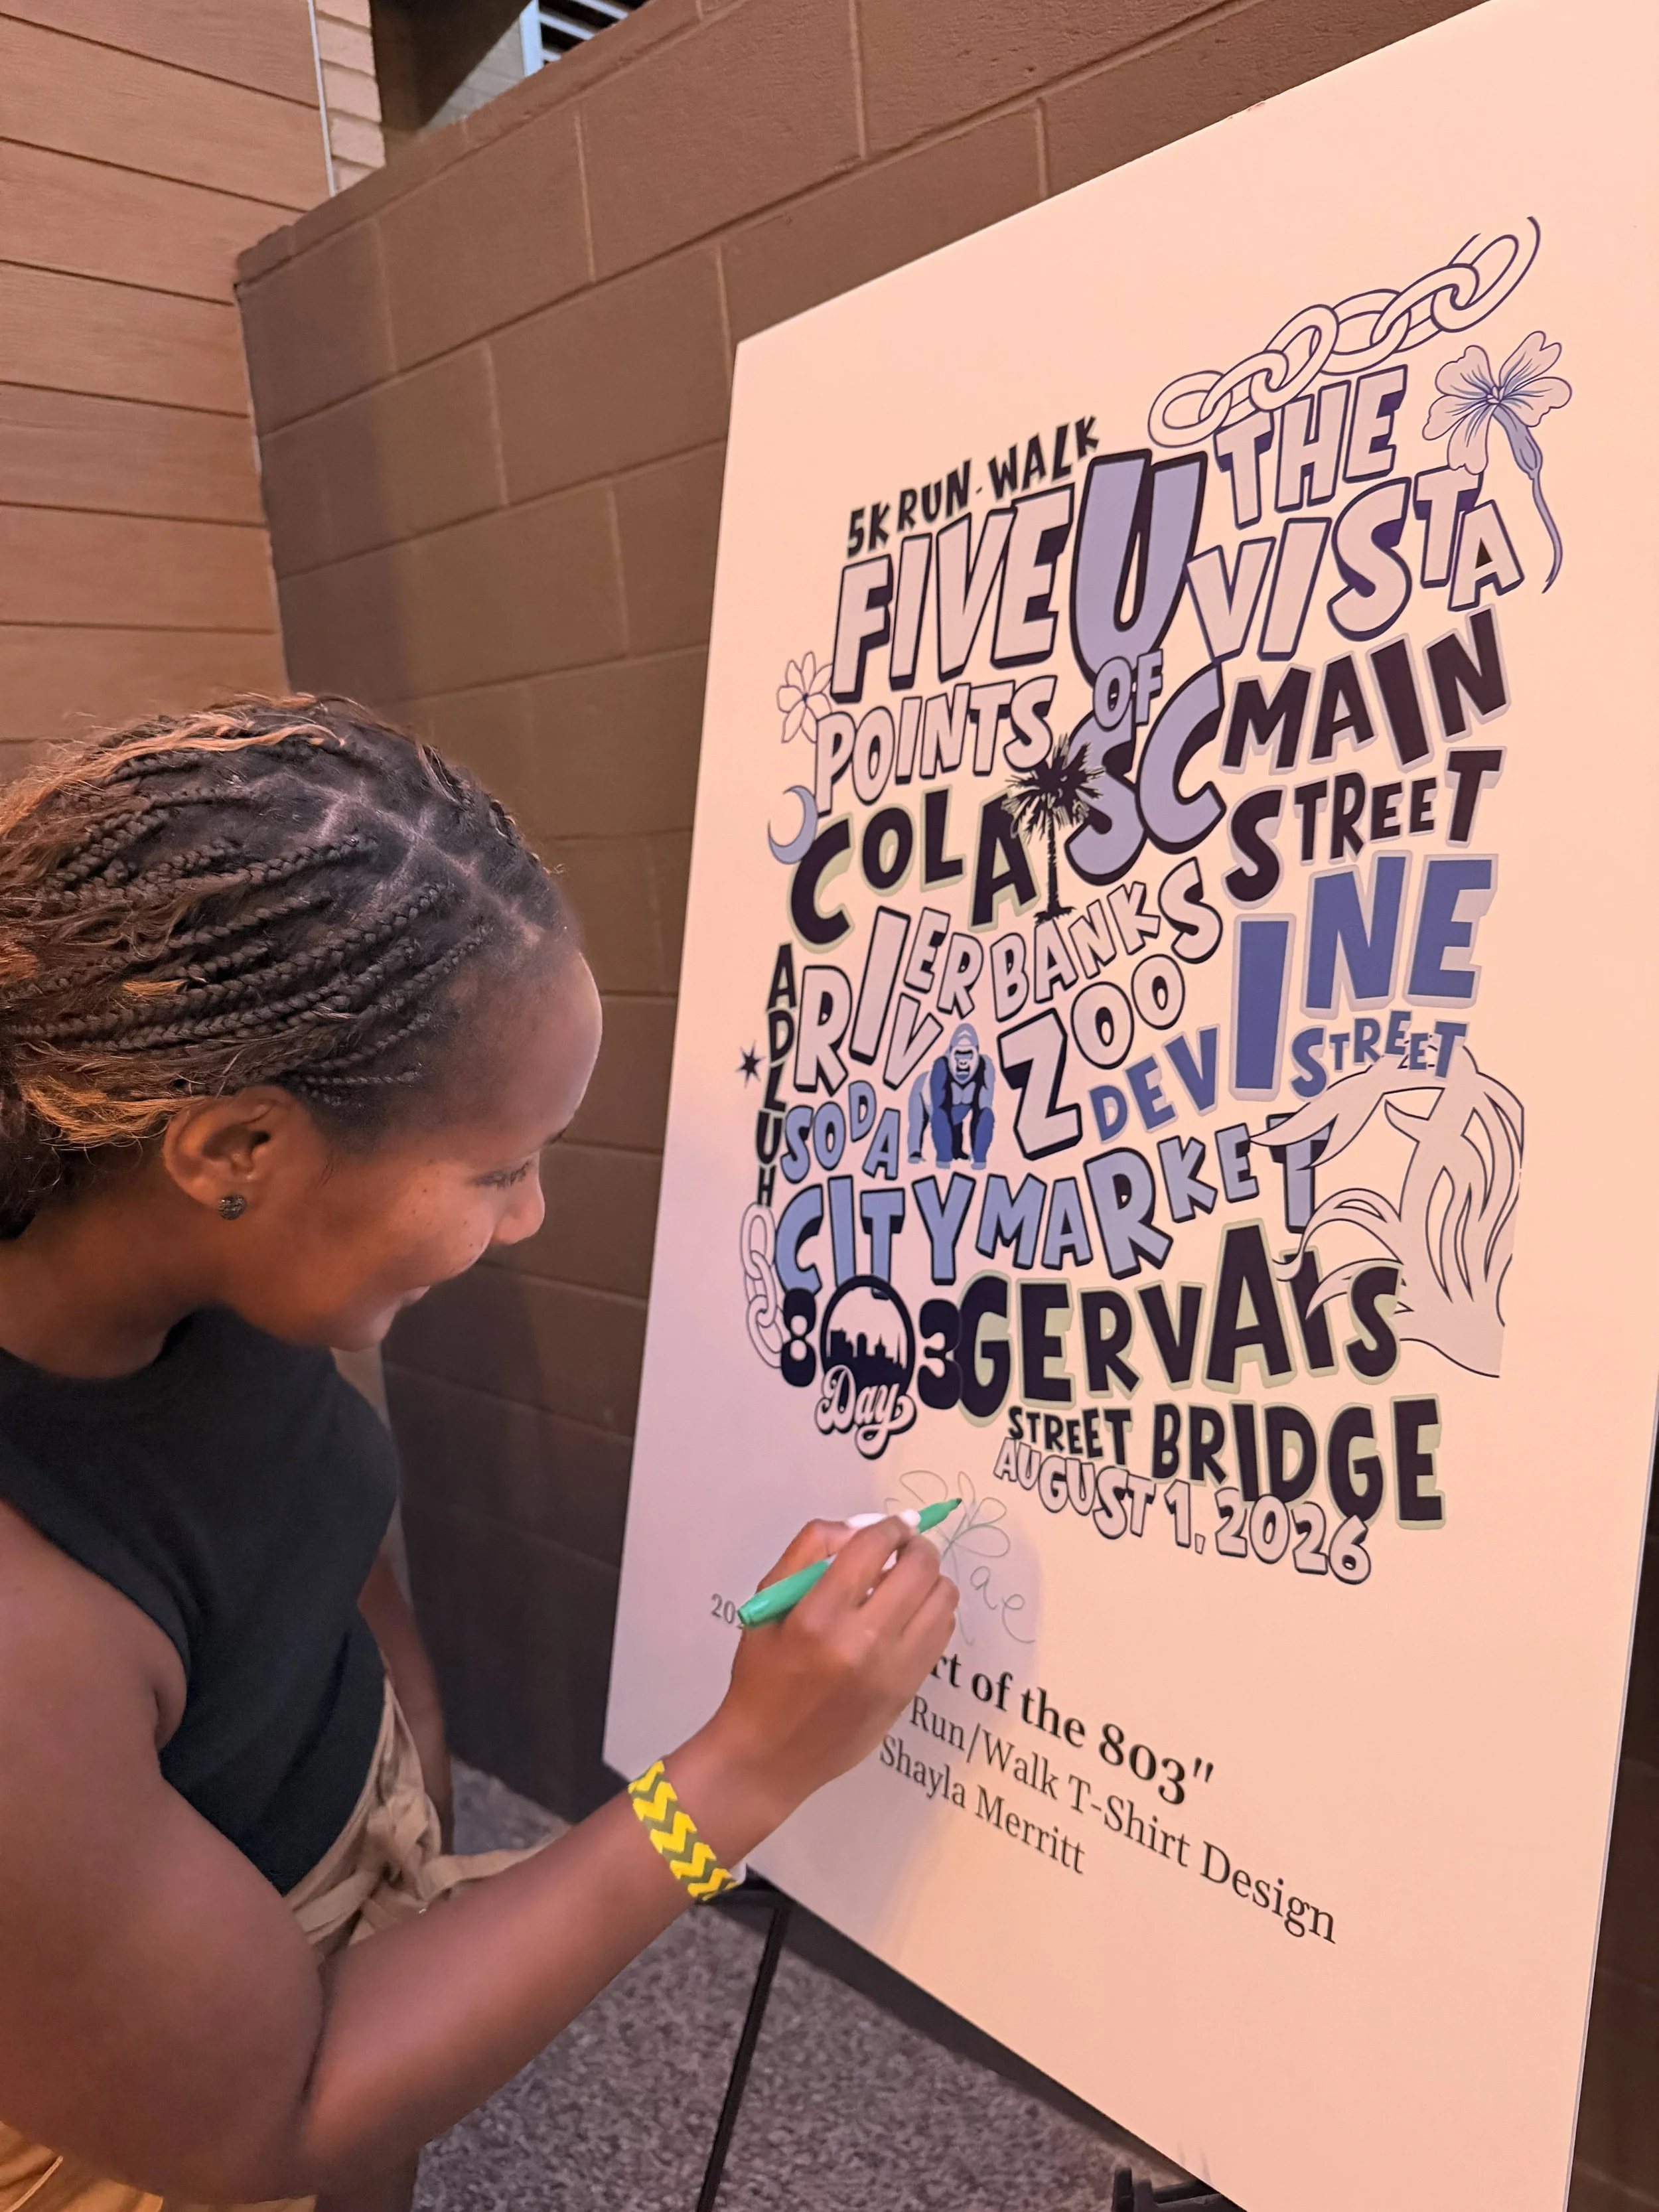 5K RUN-WALK
FIVE
POINTS
U
OF
SC
THE
VISTA
MAIN
STREET
COLA
RIVERBANKS
ZOO
DEVINE
STREET
ADLUH
SODA
CITY MARKET
803
Day
GERVAIS
STREET BRIDGE
AUGUST 1, 2026
Rae
20
rt of the 803"
Run/Walk T-Shirt Design
Shayla Merritt